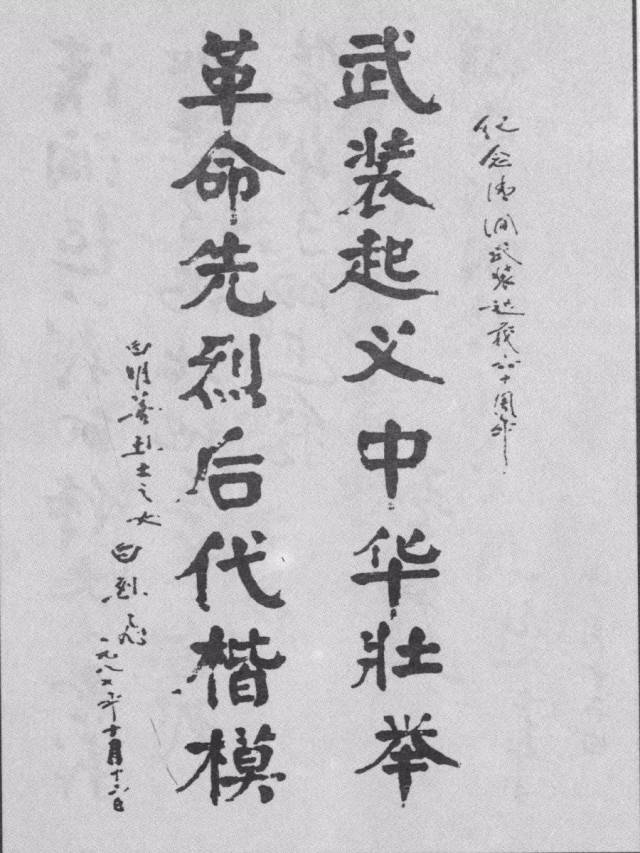 纪念清涧武装起義六十周年
武装起义中华壮举
革命先烈后代楷模
白明善烈士之女 白烈飞
一九八七年十月十六日